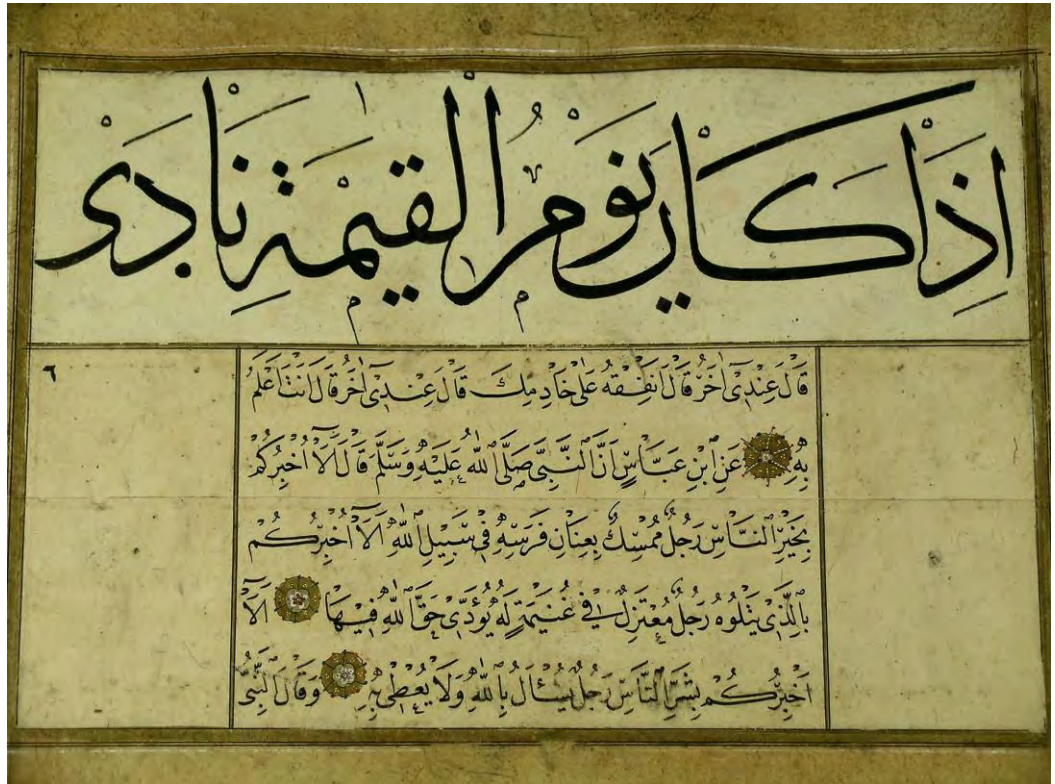 اِذَا كَانَ يَوْمُ الْقِيٰمَةِ نَادٰى
٦
قَالَ عِنْدِىٓ اٰخَرُ قَالَ اَنْفِقْهُ عَلٰى خَادِمِكَ قَالَ عِنْدِىٓ اٰخَرُ قَالَ اَنْتَ اَعْلَمُ
بِهٖ عَنِ ابْنِ عَبَّاسٍ اَنَّ النَّبِىَّ صَلَّى اللّٰهُ عَلَيْهِ وَسَلَّمَ قَالَ اَلَآ اُخْبِرُكُمْ
بِخَيْرِ النَّاسِ رَجُلٌ مُمْسِكٌ بِعِنَانِ فَرَسِهٖ فِى سَبِيلِ اللّٰهِ اَلَآ اُخْبِرُكُمْ
بِالَّذِى يَتْلُوهُ رَجُلٌ مُعْتَزِلٌ فِى غُنَيْمَةٍ لَهُ يُؤَدِّى حَقَّ اللّٰهِ فِيهَا اَلَآ
اُخْبِرُكُمْ بِشَرِّ النَّاسِ رَجُلٌ يُسْئَالُ بِاللّٰهِ وَلَا يُعْطِى بِهٖ وَقَالَ النَّبِىُّ